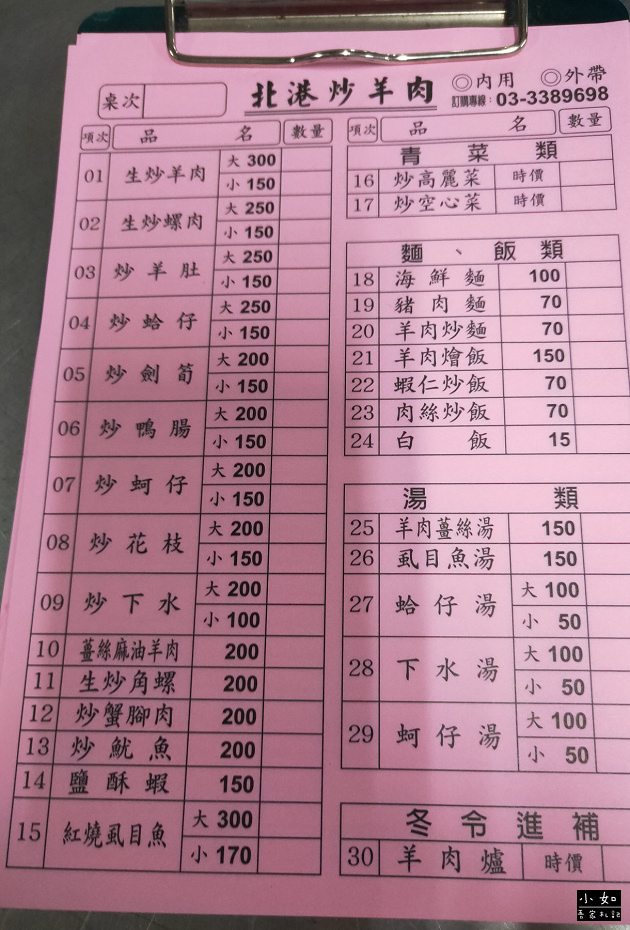 北港炒羊肉
◎內用 ◎外帶
訂購專線：03-3389698
桌次
項次 品名 數量
01 生炒羊肉 大 300
小 150
02 生炒螺肉 大 250
小 150
03 炒羊肚 大 250
小 150
04 炒蛤仔 大 250
小 150
05 炒劍筍 大 200
小 150
06 炒鴨腸 大 200
小 150
07 炒蚵仔 大 200
小 150
08 炒花枝 大 200
小 150
09 炒下水 大 200
小 100
10 薑絲麻油羊肉 200
11 生炒角螺 200
12 炒蟹腳肉 200
13 炒魷魚 200
14 鹽酥蝦 150
15 紅燒虱目魚 大 300
小 170
項次 品名 數量
青菜類
16 炒高麗菜 時價
17 炒空心菜 時價
麵、飯類
18 海鮮麵 100
19 豬肉麵 70
20 羊肉炒麵 70
21 羊肉燴飯 150
22 蝦仁炒飯 70
23 肉絲炒飯 70
24 白飯 15
湯類
25 羊肉薑絲湯 150
26 虱目魚湯 150
27 蛤仔湯 大 100
小 50
28 下水湯 大 100
小 50
29 蚵仔湯 大 100
小 50
冬令進補
30 羊肉爐 時價
小如
吾家札記